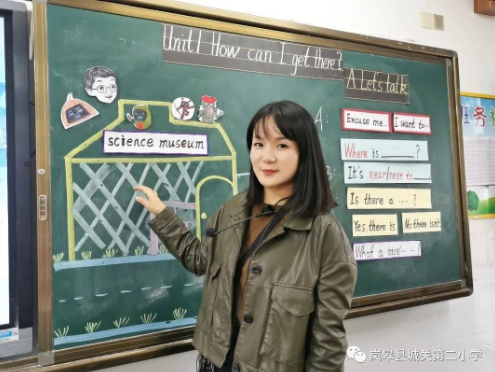 Unit 1 How can I get there?
A Let's talk
science museum
A:
Excuse me.
I want to...
Where is ____?
It's near/next to ____
Is there a ... ?
Yes.there is
No.there isn't
What a
岚皋县城关第二小学